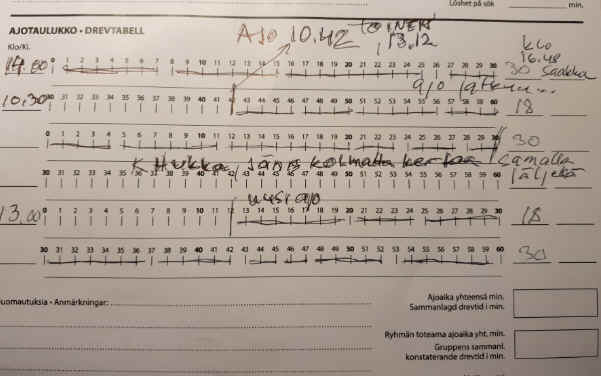 Löshet på sök min.
AJOTAULUKKO • DREVTABELL
Ajo 10.42 toinen 13.12
Klo/Kl.
klo 16.48
14.00 0 1 2 3 4 5 6 7 8 9 10 11 12 13 14 15 16 17 18 19 20 21 22 23 24 25 26 27 28 29 30 30 saakka
ajo jatkuu...
10.30 30 31 32 33 34 35 36 37 38 39 40 41 43 44 45 46 47 48 49 50 51 52 53 54 55 56 57 58 59 60 18
0 1 2 3 4 5 6 7 8 9 10 11 12 13 14 15 16 17 18 19 20 21 22 23 24 25 26 27 28 29 30 30
Hukka, jänis kolmatta kertaa samalla jäljellä
30 31 32 33 34 35 36 37 38 39 40 41 42 43 44 45 46 47 48 49 50 51 52 53 54 55 56 57 58 59 60
uusi ajo
13.00 0 1 2 3 4 5 6 7 8 9 10 11 12 13 14 15 16 17 18 19 20 21 22 23 24 25 26 27 28 29 30 18
30 31 32 33 34 35 36 37 38 39 40 41 42 43 44 45 46 47 48 49 50 51 52 53 54 55 56 57 58 59 60 30
uomautuksia • Anmärkningar:
Ajoaika yhteensä min.
Sammanlagd drevtid i min.
Ryhmän toteama ajoaika yht. min.
Gruppens sammanl.
konstaterande drevtid i min.